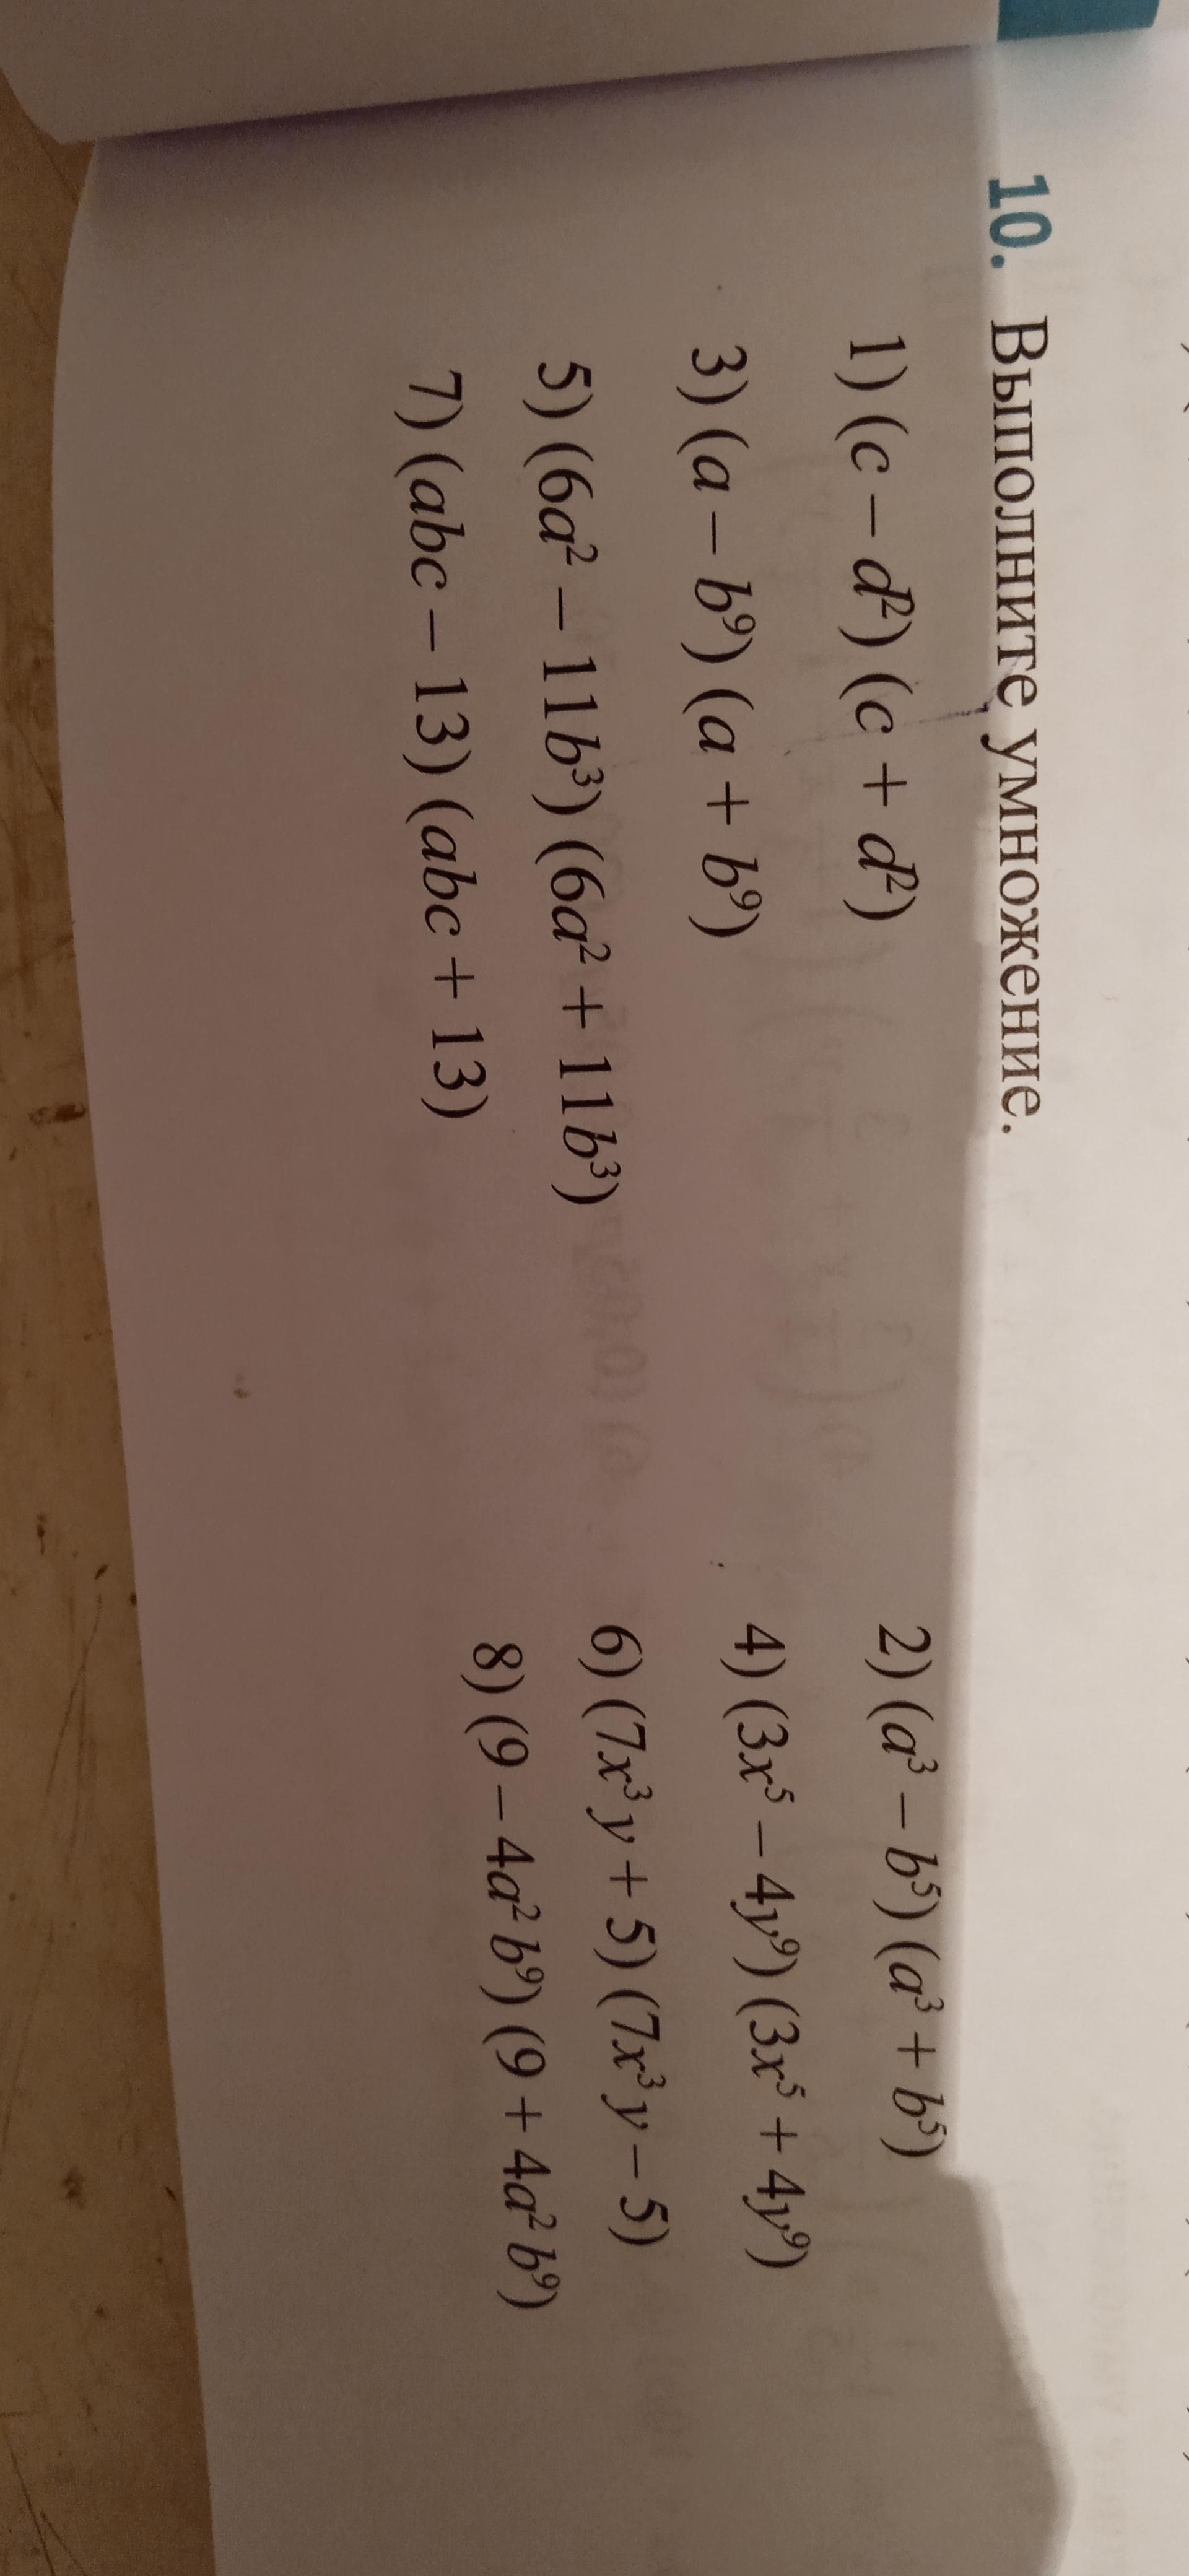 10. Выполните умножение.
1) (c – d²) (c + d²) 2) (a³ – b⁵) (a³ + b⁵)
3) (a – b⁹) (a + b⁹) 4) (3x⁵ – 4y⁹) (3x⁵ + 4y⁹)
5) (6a² – 11b³) (6a² + 11b³) 6) (7x³y + 5) (7x³y – 5)
7) (abc – 13) (abc + 13) 8) (9 – 4a²b⁹) (9 + 4a²b⁹)